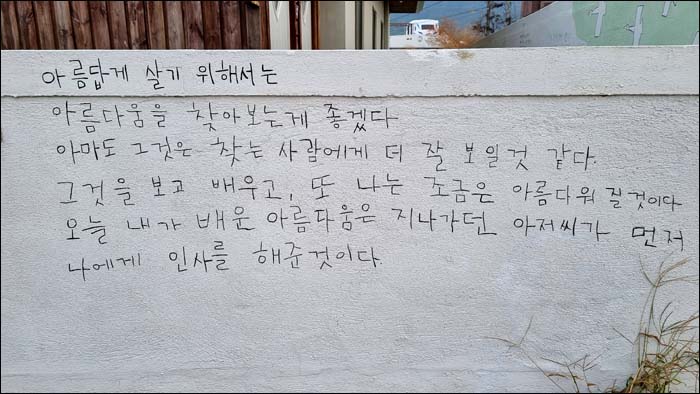 아름답게 살기 위해서는
아름다움을 찾아보는게 좋겠다
아마도 그것은 찾는 사람에게 더 잘 보일것 같다.
그것을 보고 배우고, 또 나는 조금은 아름다워 질것이다
오늘 내가 배운 아름다움은 지나가던 아저씨가 먼저
나에게 인사를 해준것이다.